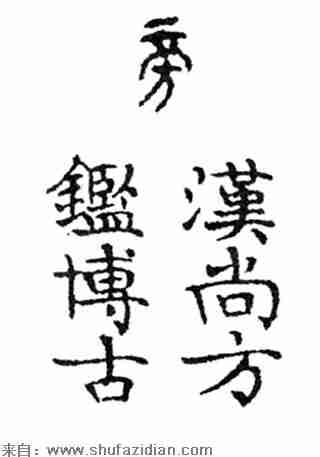 旁
漢尚方
鑑博古
来自：www.shufazidian.com